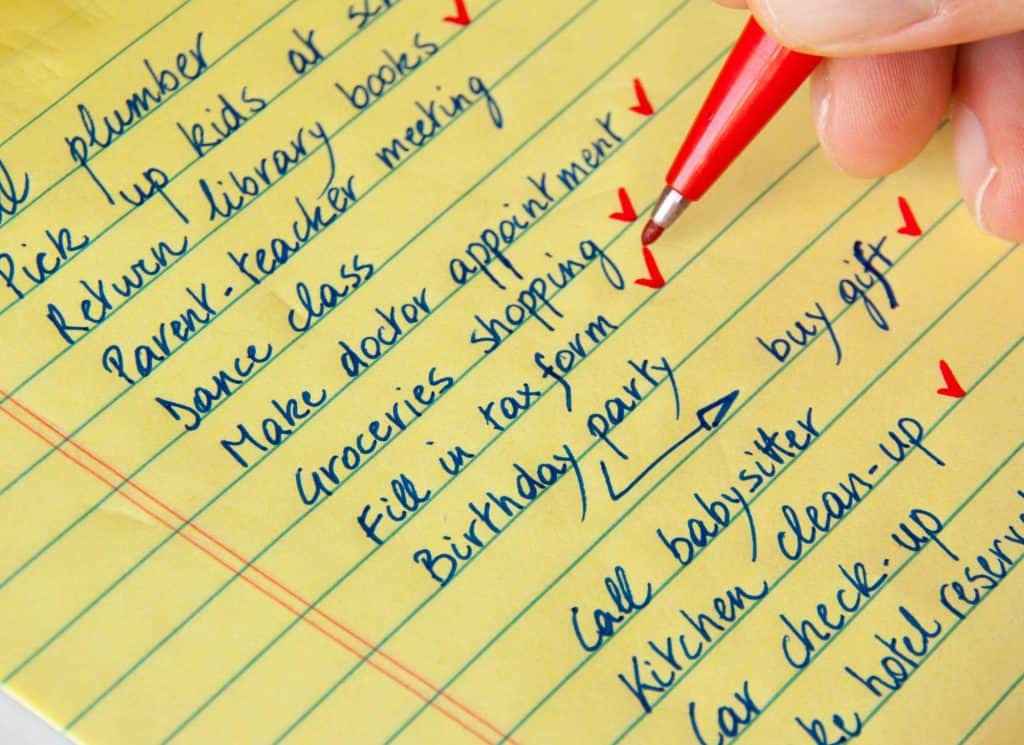 plumber
Pick up kids at
Return library books
Parent-teacher meeting
Dance class
Make doctor appointment
Groceries shopping
Fill in tax form
Birthday party
buy gift
Call babysitter
Kitchen clean-up
Car check-up
hotel